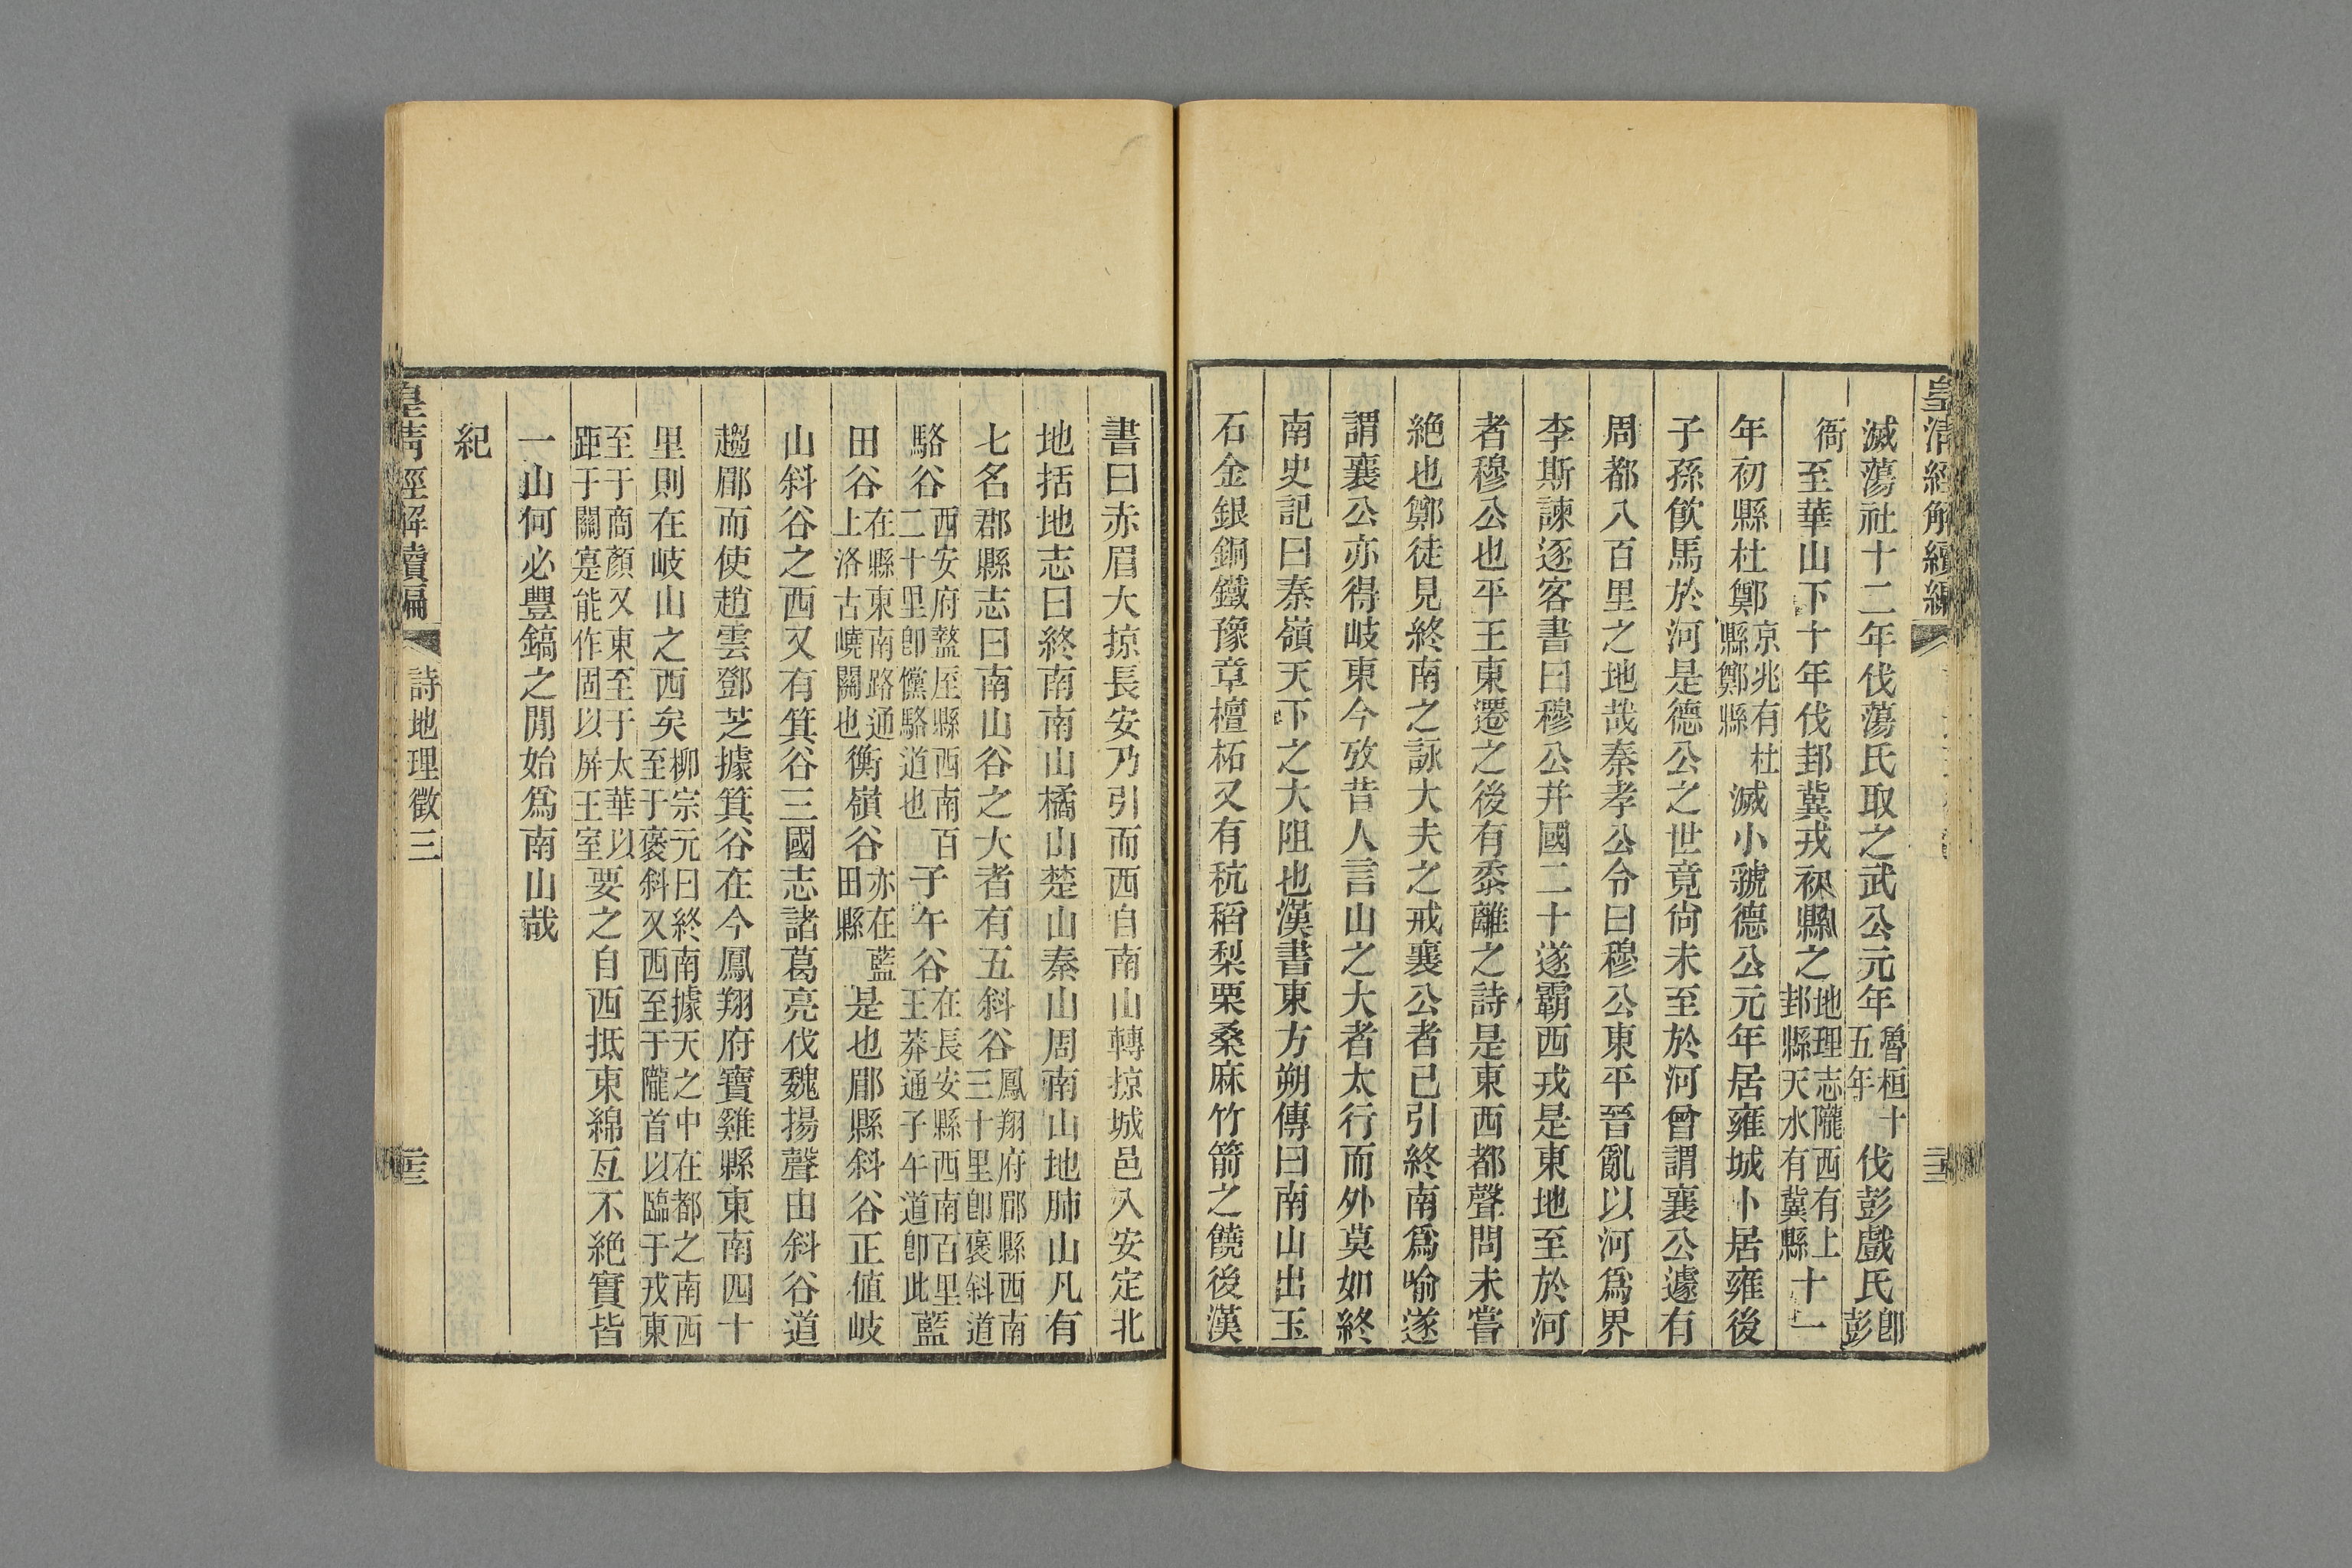 皇清經解續編
滅蕩社十二年伐蕩氏取之武公元年魯桓十五年伐彭戲氏卽彭
衙至華山下十年伐邽冀戎初縣之地理志隴西有上邽縣天水有冀縣十一
年初縣杜鄭京兆有杜縣鄭縣滅小虢德公元年居雍城卜居雍後
子孫飮馬於河是德公之世竟尙未至於河曾謂襄公遽有
周都八百里之地哉秦孝公令曰穆公東平晉亂以河爲界
李斯諫逐客書曰穆公幷國二十遂霸西戎是東地至於河
者穆公也平王東遷之後有黍離之詩是東西都聲問未嘗
絶也鄭徒見終南之詠大夫之戒襄公者已引終南爲喻遂
謂襄公亦得岐東今攷昔人言山之大者太行而外莫如終
南史記曰秦嶺天下之大阻也漢書東方朔傳曰南山出玉
石金銀銅鐵豫章檀柘又有秔稻梨栗桑麻竹箭之饒後漢
書曰赤眉大掠長安乃引而西自南山轉掠城邑入安定北
地括地志曰終南南山橘山楚山秦山周南山地肺山凡有
七名郡縣志曰南山谷之大者有五斜谷鳳翔府郿縣西南三十里卽褒斜道
駱谷西安府盩厔縣西南百二十里卽儻駱道也子午谷在長安縣西南百里王莽通子午道卽此藍
田谷在縣東南路通上洛古嶢關也衡嶺谷亦在藍田縣是也郿縣斜谷正値岐
山斜谷之西又有箕谷三國志諸葛亮伐魏揚聲由斜谷道
趨郿而使趙雲鄧芝據箕谷在今鳳翔府寶雞縣東南四十
里則在岐山之西矣柳宗元曰終南據天之中在都之南西至于褒斜又西至于隴首以臨于戎東
至于商顏又東至于太華以距于關寔能作固以屏王室要之自西抵東綿亙不絶實皆
一山何必豐鎬之閒始爲南山哉
紀
皇淸經解續編
詩地理徵三